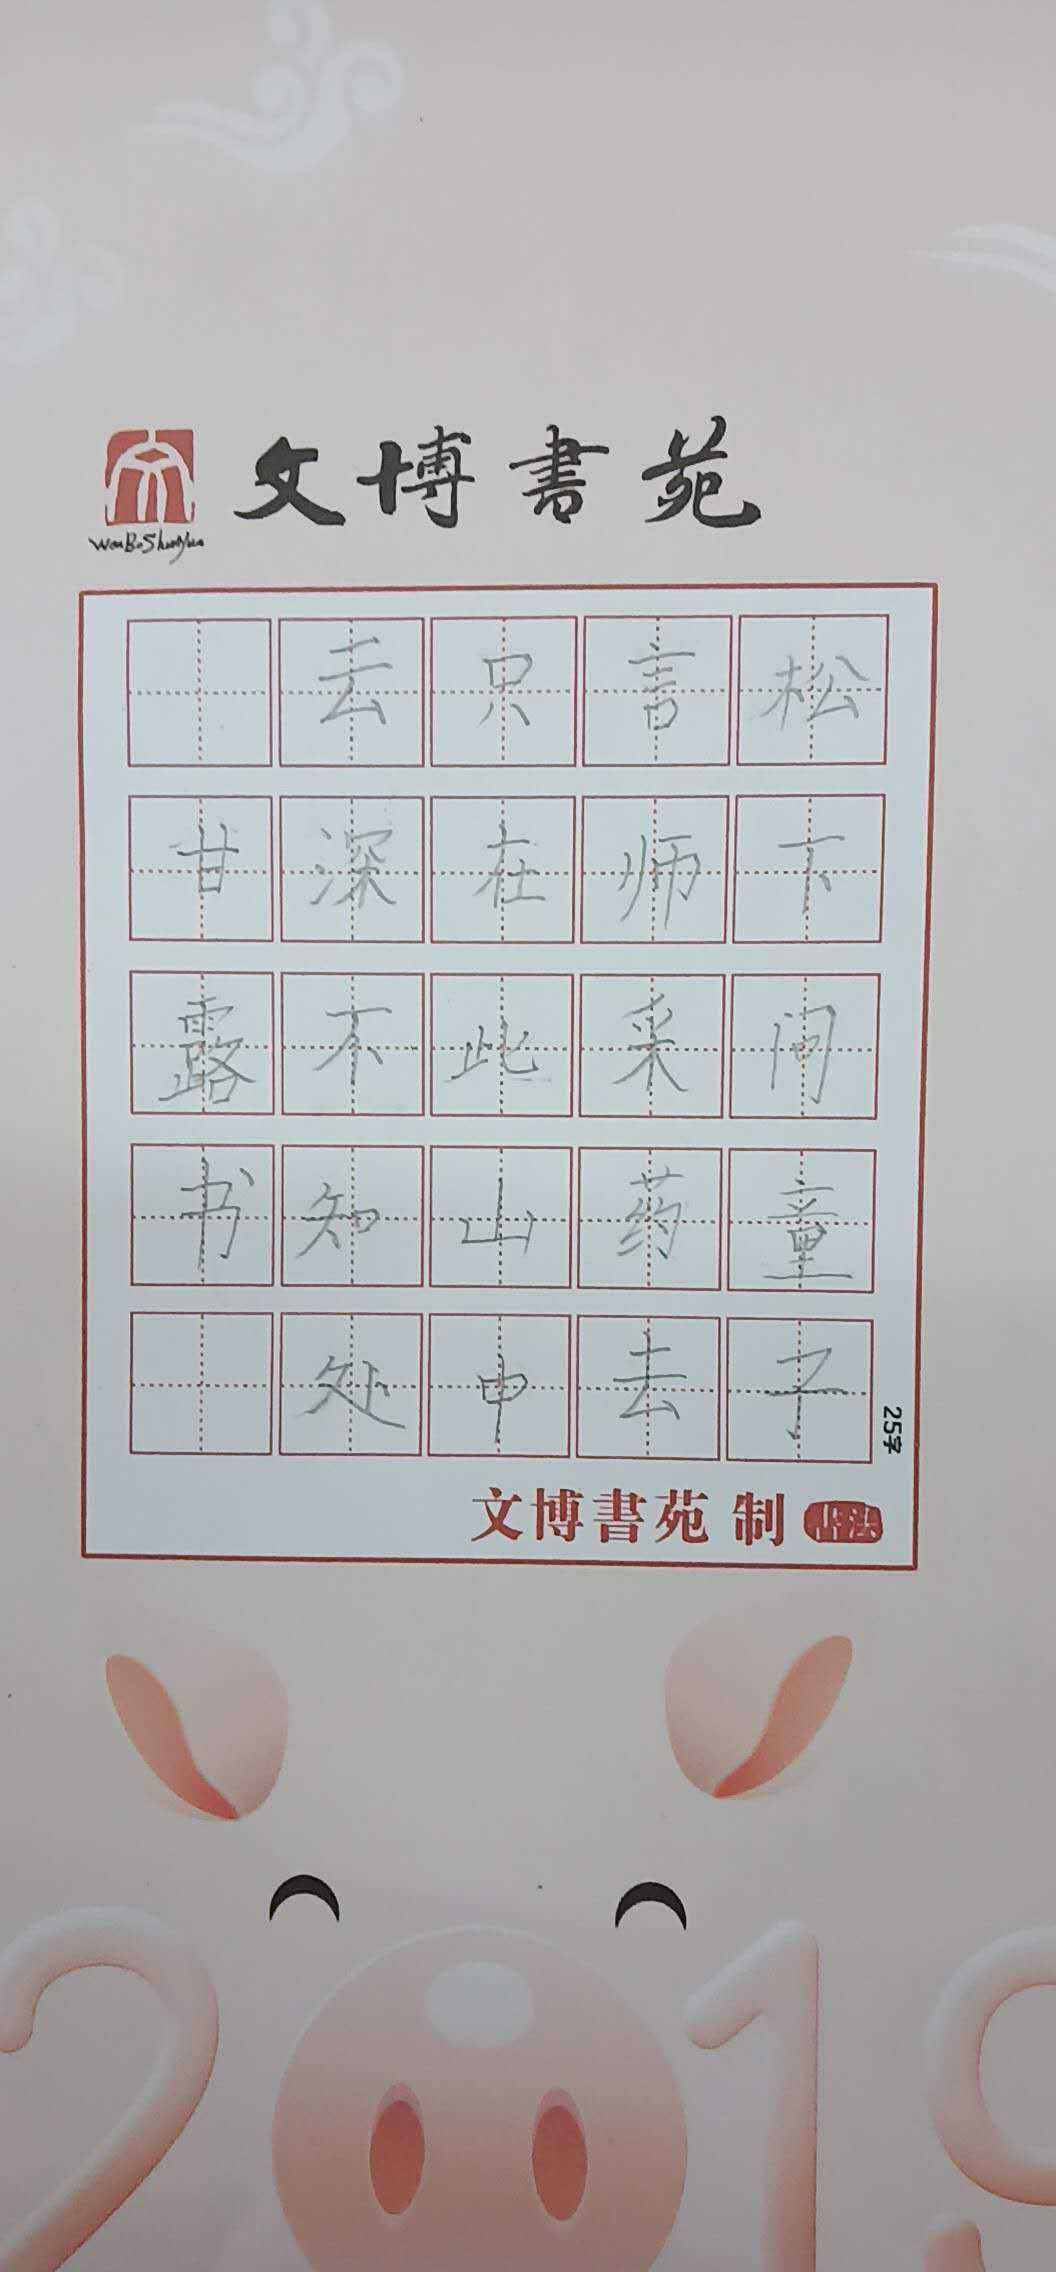 文博書苑
WenBoShuYuan
松下问童子
言师采药去
只在此山中
云深不知处
甘露书
25字
文博書苑 制 书法
2019